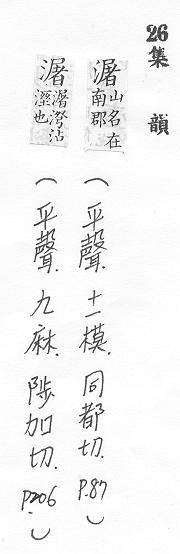 26 集韻
潳 山名在南郡
(平聲、十一模、同都切. P.87)
潳 潳漈沾溼也
(平聲、九麻、陟加切. P.206)